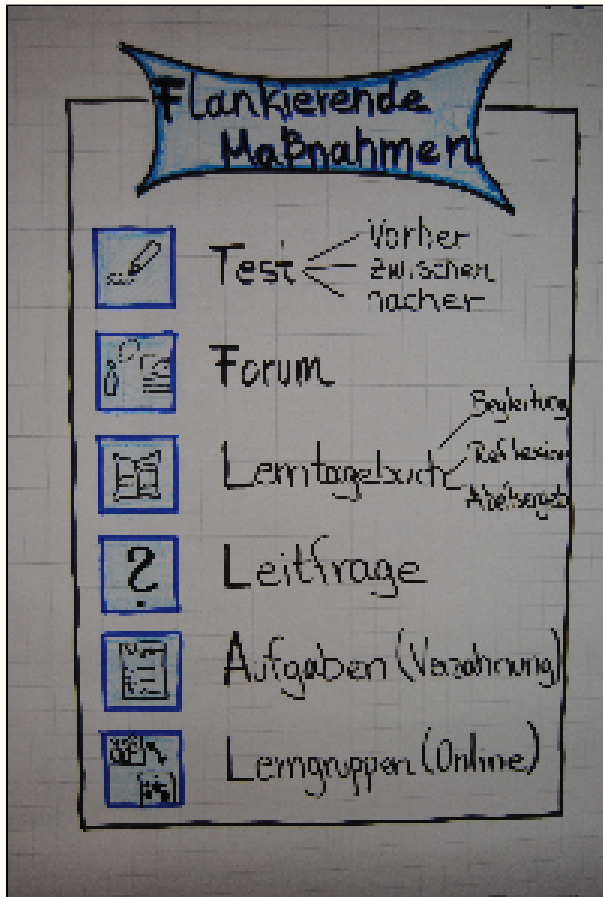 Flankierende
Maßnahmen
Test
Vorher
zwischen
nacher
Forum
Lerntagebuch
Begleitung
Reflexion
Leitfrage
Aufgaben (Verzahnung)
Lerngruppen (Online)